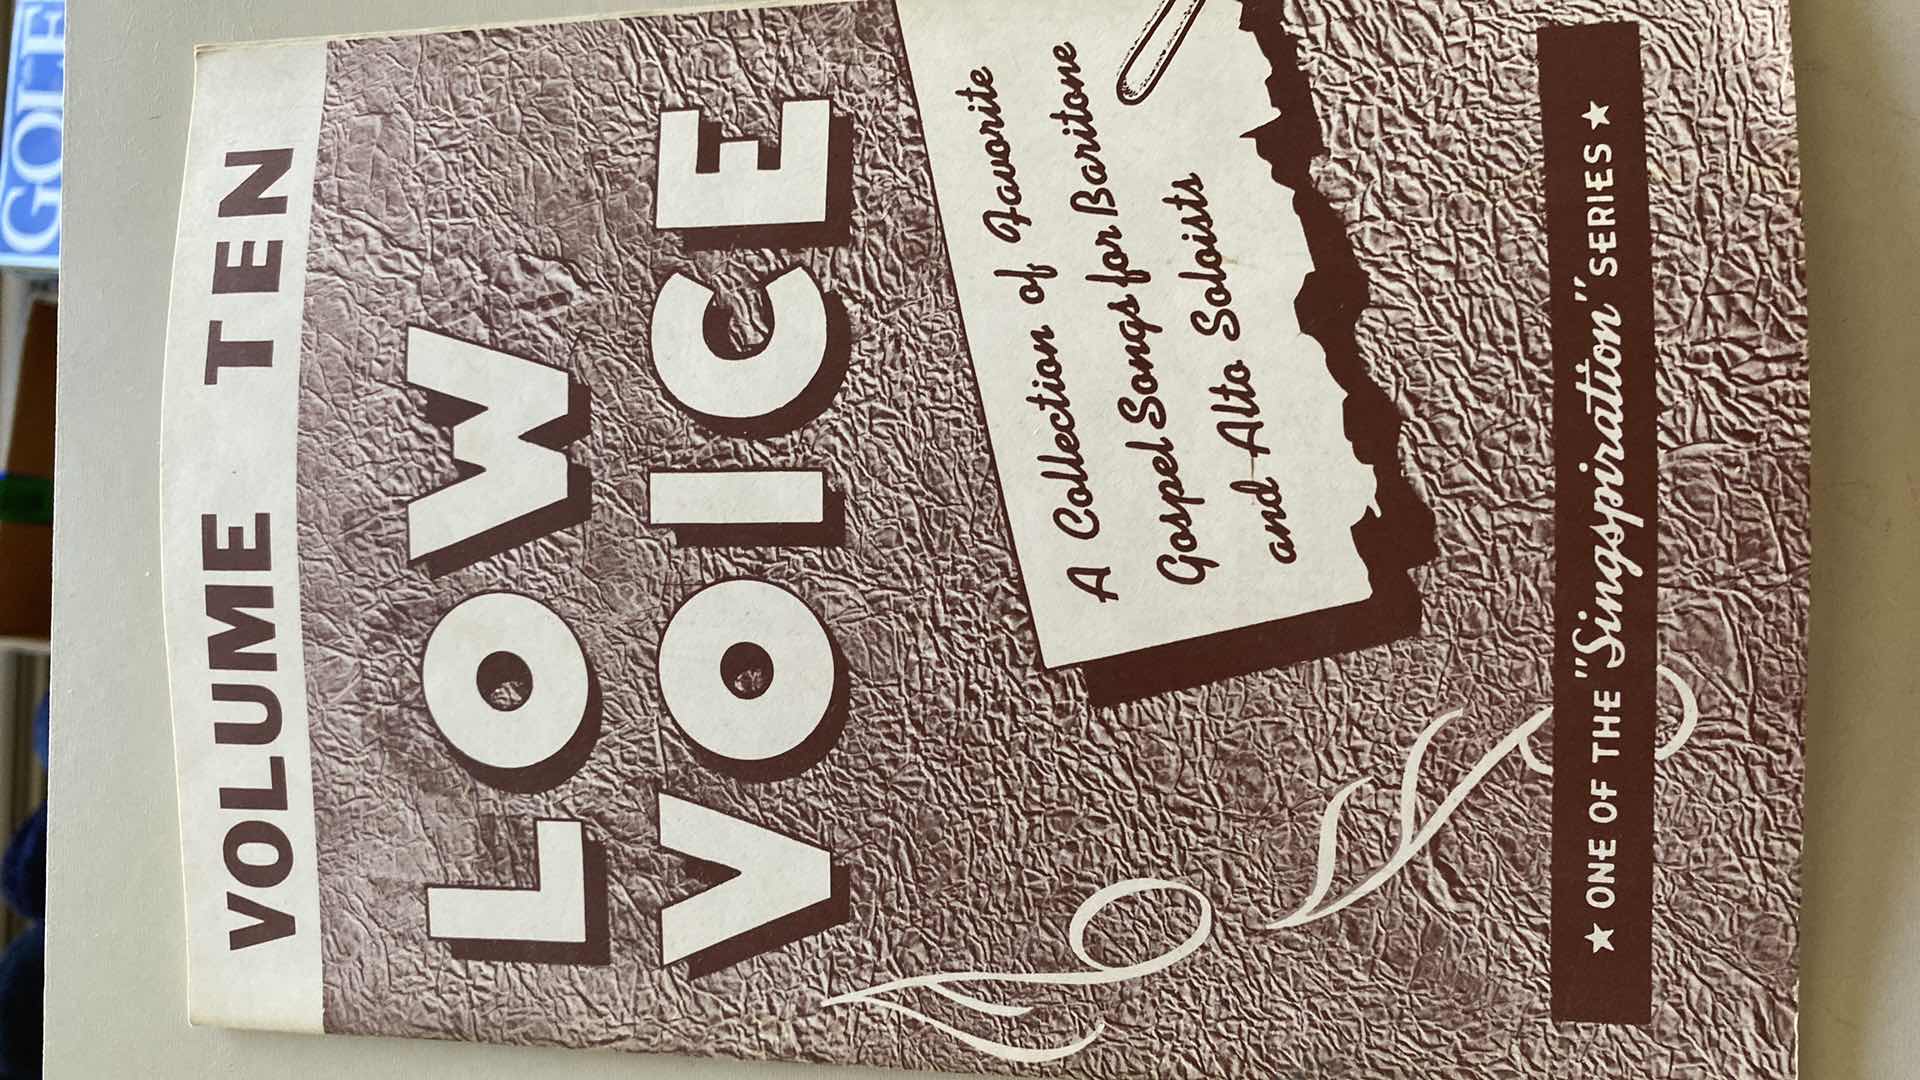 GOLF
VOLUME TEN
LOW
VOICE
A Collection of Favorite
Gospel Songs for Baritone
and Alto Soloists
★ ONE OF THE "Singspiration" SERIES ★